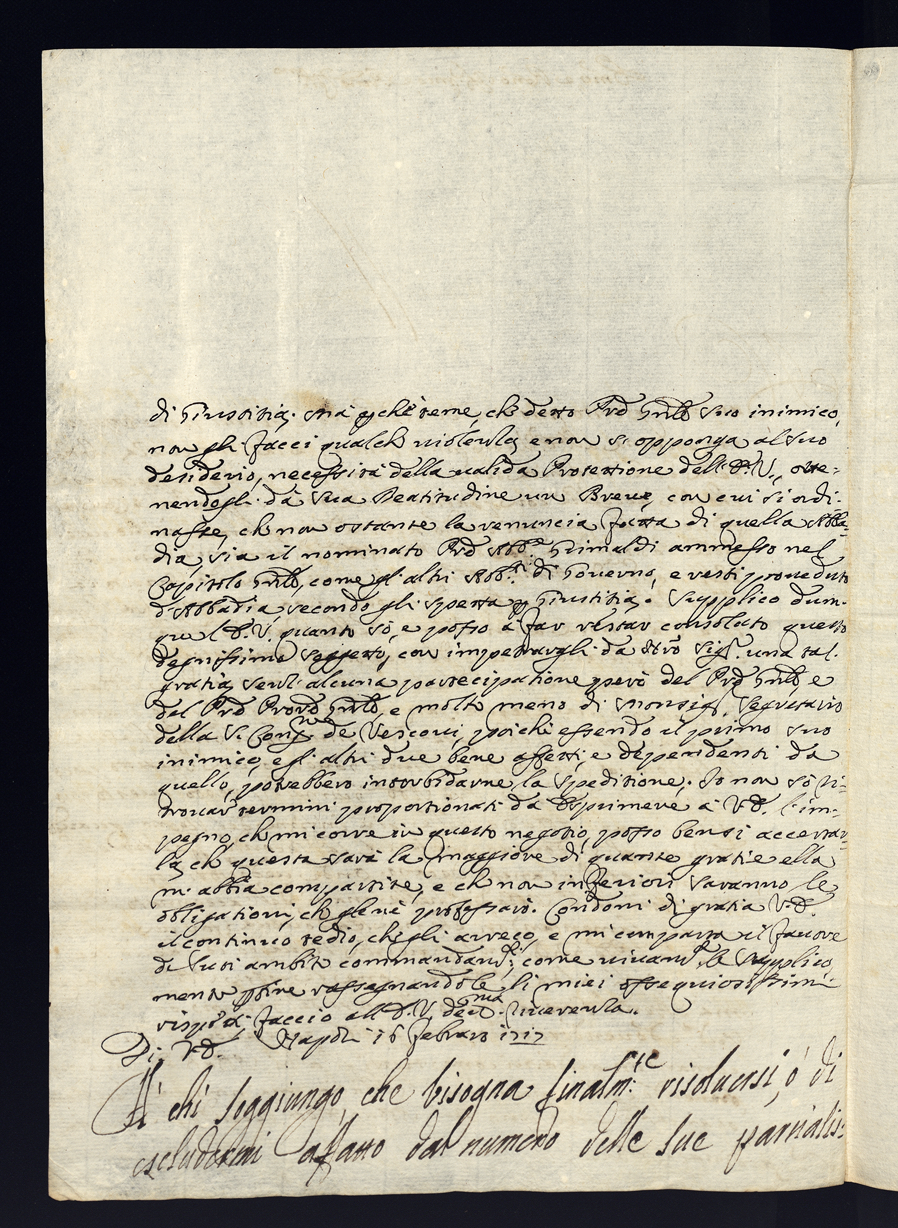 di Giustitia. Mà p̱che teme, ch̄ detto Prd̄ Gnl̄e suo inimico,
non gli facci qualch̄ uiolenza, e non si opponga al suo
desiderio, necessità della ualida Protettione dell'E. V., otte-
nendogli dà Sua Beatitudine un Breue, con cui si ordi-
nasse, ch̄ non ostante la renuncia fatta di quella Abba-
dia, sia il nominato Prd̄ Abb.e Grimaldi ammesso nel
Capitolo Gnl̄e, come gl'altri Abb.ti di Gouerno, e resti proueduto
d'Abbadia, secondo gli spetta p̱ Giustitia. Supplico dun-
que l'E. V. quanto sò, e posso à far restar consolato questo
degnissimo soggetto, con impetrargli dà Nrō Sig.e una tal
gratia, senz'alcuna participatione però del Prd̄ Gnl̄e, e
del Prd̄ Gnl̄e e molto meno di Monsig.r Segretario
della S. Cong.ne de Vescoui, poiche essendo il primo suo
inimico, e gl'altri due bene affetti, e dependenti da
quello, potrebbero intorbidarne la speditione. Io non sò ri-
trouar termini proportionati dà esprimere à V. E. l'im-
pegno, ch̄ mi corre in questo negotio, posso bensi accertar-
la, ch̄ questa sarà la maggiore di quante gratie ella
m'abbia compartite, e ch̄ non inferiori saranno le
obligationi, ch̄ gliene professarò. Condoni di gratia V. E.
il continuo tedio, che gli arreco, e mi comparta il fauore
de suoi ambiti commandam.ti, come uiuam.te la supplico,
mentre p̱ fine rassegnandole li miei ossequiosissimi
rispetti, faccio all'E. V. riuerenza.
Di V. E. Napoli 16 Febraro 1717
A' chi soggiungo, che bisogna finalm.te risoluersi, ò di
escludermi affatto dal numero delle sue partialis-